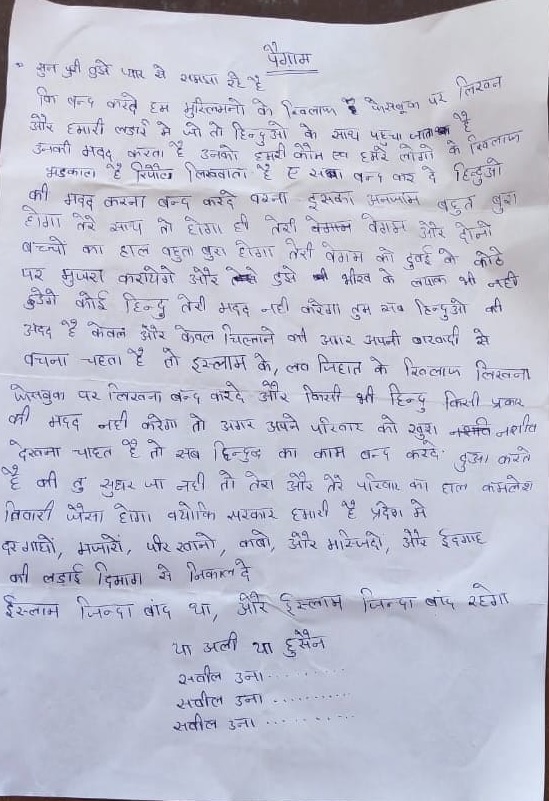 पैगाम
सुन पूरी तुझे प्यार से समझा रहे है
कि बन्द करदे हम मुस्लिमनो के खिलाफ फेसबुक पर लिखन
और हमारी लडाई मे जो तो हिन्दुओ के साथ पहुचा जाता है
उनकी मदद करता है उनको हमरी कौम एव हमरे लोगो के खिलाफ
भडकाता है रिर्पोट लिखवाता है ए सब बन्द कर दे हिन्दुओ
की मदद करना बन्द करदे वरना इसका अनजाम बहुत बुरा
होगा तेरे साथ तो होगा ही तेरी बेगम और दोनो
बच्चो का हाल बहुत बुरा होगा तेरी बेगम को दुबई के कोठे
पर मुजरा करायेगे और तुझे भीख के लायक भी नही
छुडेगे कोई हिन्दु तेरी मदद नही करेगा तुम सब हिन्दुओ की
अदद है केवल और केवल चिल्लाने की अगर अपनी बरवादी से
बचना चहता है तो इस्लाम के, लव जिहात के खिलाफ लिखना
फेसबुक पर लिखना बन्द करदे और किसी भी हिन्दु किसी प्रकार
की मदद नही करेगा तो अगर अपने परिवार को खुश नशीव
देखना चाहत है तो सब हिन्दुत्व का काम बन्द करदे दुआ करते
है की तु सुधार जा नही तो तेरा और तेरे परिवार का हाल कमलेश
तिवारी जैसा होगा क्योकि सरकार हमारी है प्रदेश मे
दरगाहो, मजारो, पीर खानो, कब्रो, और मस्जिदो, और ईदगाह
की लडाई दिमाग से निकाल दे
ईस्लाम जिन्दा बाद था, और ईस्लाम जिन्दा बाद रहेगा
या अली या हुसैन
सबील उना.........
सबील उना.........
सबील उना.........